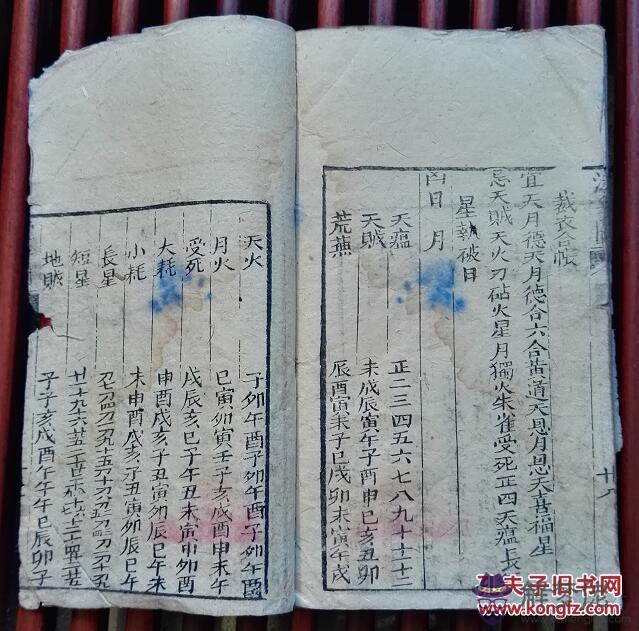 裁衣合帳
宜天月德天月德合六合黄道天恩月恩天喜福星
忌天賊天火刀砧火星月獨火朱雀受死正四天瘟長
星執破日
凶日 月
天瘟 正二三四五六七八九十十十二
天賊 未戌辰寅午子酉申巳亥丑卯
荒蕪 辰酉寅未子巳戌卯未寅午戌
十八
天火 子卯午酉子卯午酉子卯午酉
月火 巳寅卯寅壬子亥戌酉申未午
受死 戌辰亥巳子午丑未寅申卯酉
大耗 申酉戌亥子丑寅卯辰巳午未
小耗 未申酉戌亥子丑寅卯辰巳午
長星
短星
地賊 子子亥戌酉午午午巳辰卯子
夫子旧书网
www.kongfz.com